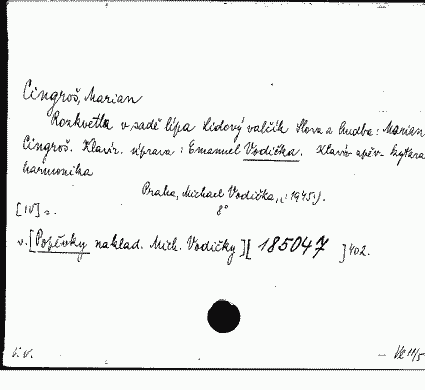 Cingroš, Marian
Rozkvetla v sadě lípa Lidový valčík Slova a hudba: Marian
Cingroš. Klavír. úprava: Emanuel Vodička. Klavír-zpěv-kytara
harmonika
Praha, Michael Vodička, (:1945:).
[IV] s. 8°
v. [Popěvky naklad. Mich. Vodičky] [185047] 402.